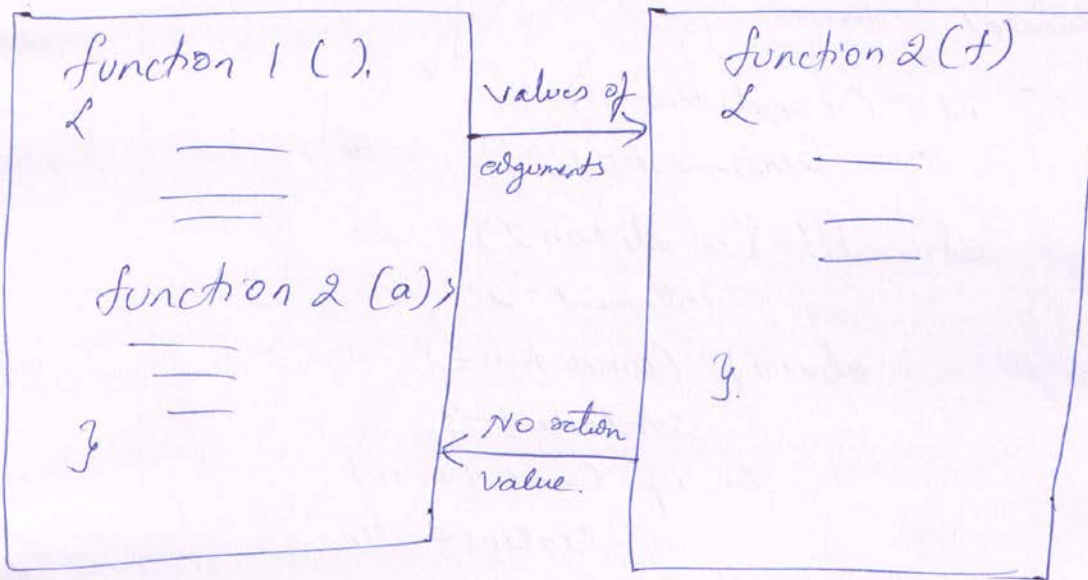 function 1 ().
{
function 2 (a);
}
values of
arguments
No action
value.
function 2 (f)
{
}.